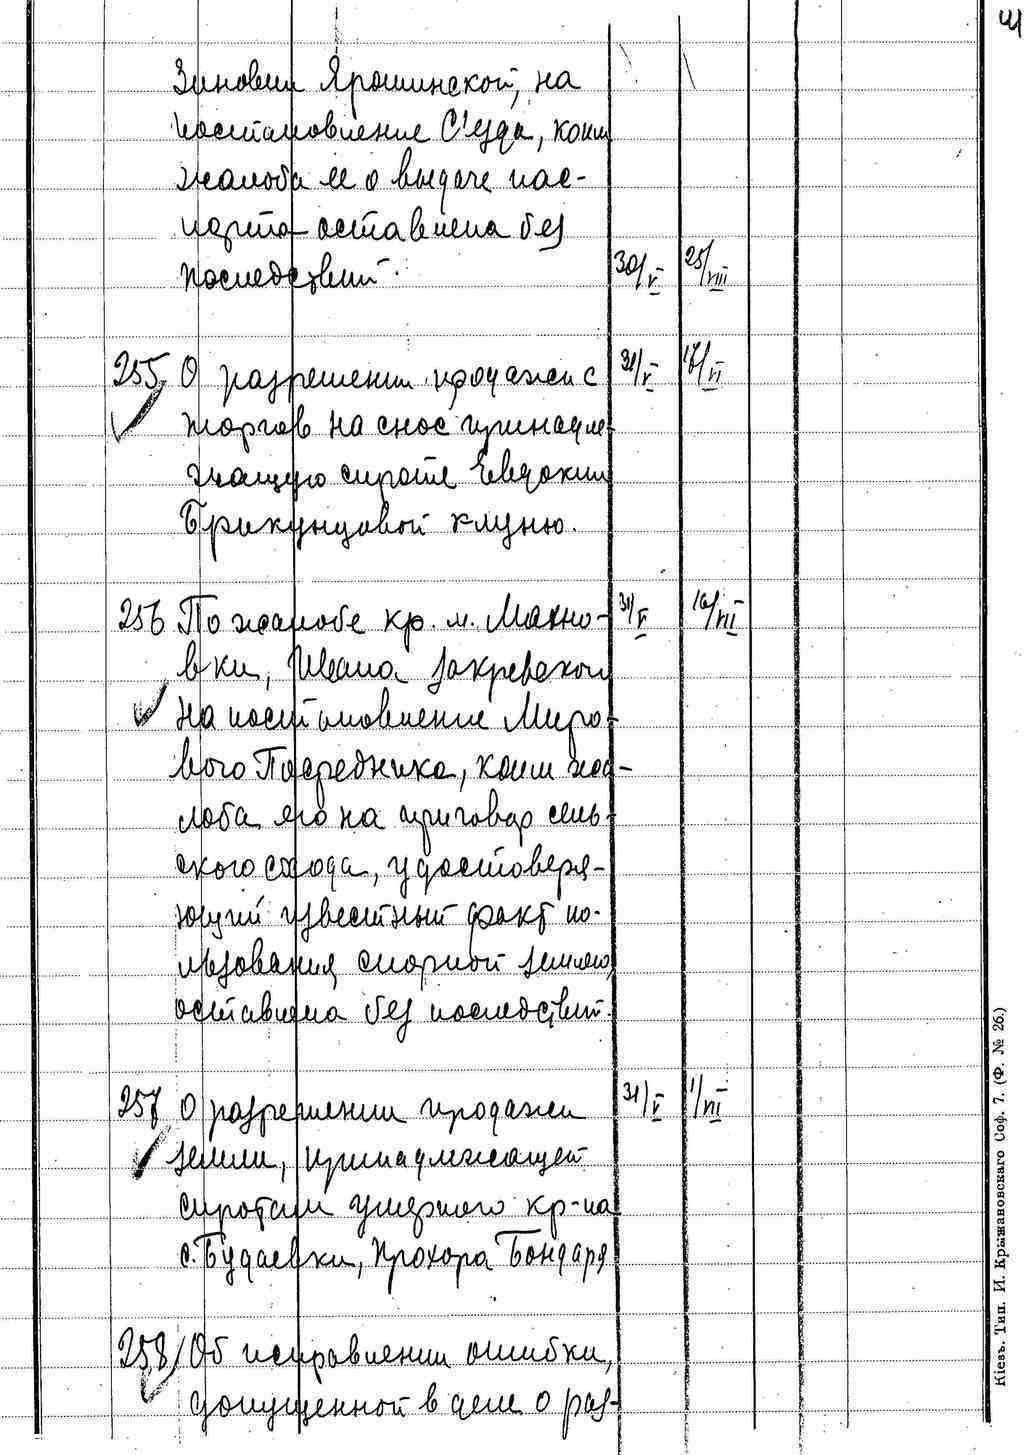 Зиновии Ярошинской, на
постановление С'езда, коим
жалоба ее о выдаче пас-
порта оставлена без
последствий.
30/V 25/VIII
255, О разрешении продажи с
31/V 17/VI
торгов на снос принадле-
жащую сироте Евдокии
Брикунцовой клуню.
256 По жалобе кр. м. Махно-
31/V 16/VII
вки, Ивана Закревского
на постановление Миро-
вого Посредника, коим жа-
лоба его на приговор сель-
ского схода, удостоверя-
ющий известный факт по-
льзования спорной землею,
оставлена без последствий.
257 О разрешении продажи
31/V 1/VII
земли, принадлежащей
сиротам умершего кр-на
с. Будаевки, Прохора Бондаря
258, Об исправлении ошибки,
допущенной в деле о раз-
Кіевъ. Тип. И. Крыжановскаго Соф. 7. (Ф. № 26.)